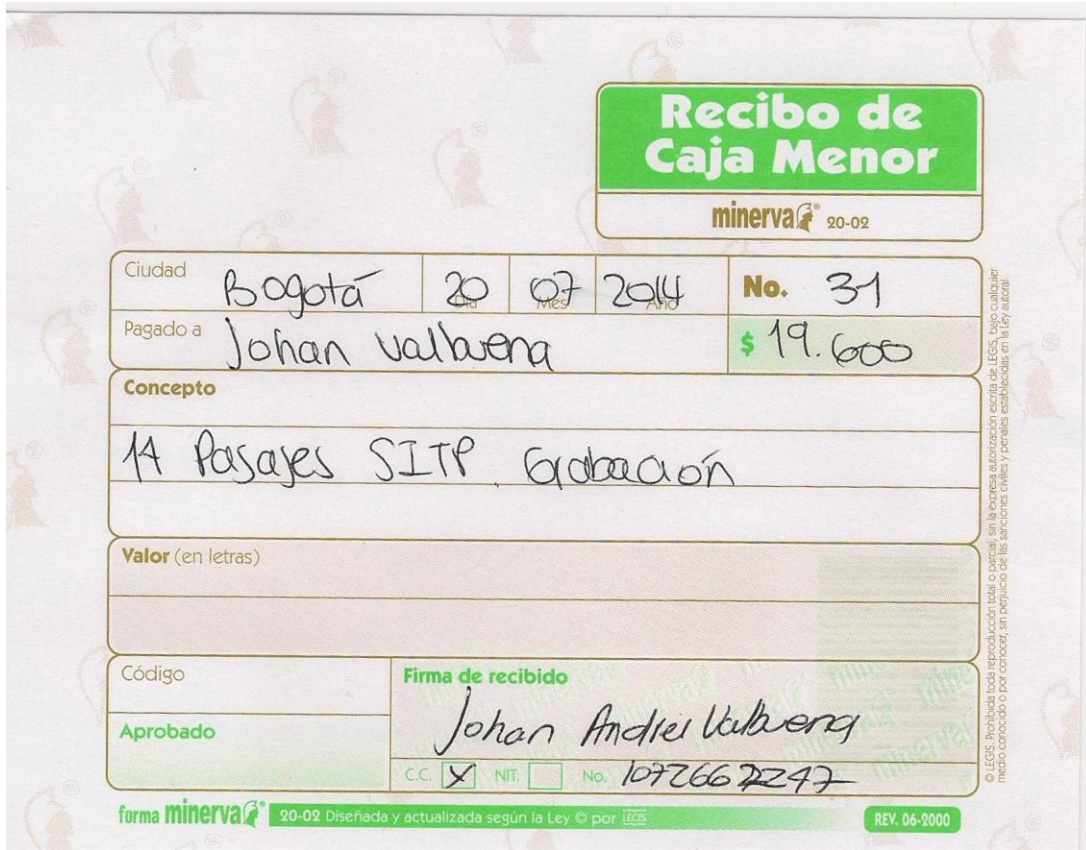 Recibo de
Caja Menor
minerva® 20-02
Ciudad Bogotá 20 Día 07 Mes 2014 Año No. 31
Pagado a Johan Valbuena $ 19.600
Concepto
14 Pasajes SITP. Grabación
Valor (en letras)
Código
Firma de recibido
Johan Andrei Valbuena
Aprobado
C.C. X NIT. No. 1072667247
forma minerva® 20-02 Diseñada y actualizada según la Ley © por LEGIS REV. 06-2000
© LEGIS. Prohibida toda reproducción total o parcial, sin la expresa autorización escrita de LEGIS, bajo cualquier
medio conocido o por conocer, sin perjuicio de las sanciones civiles y penales establecidas en la Ley autoral.